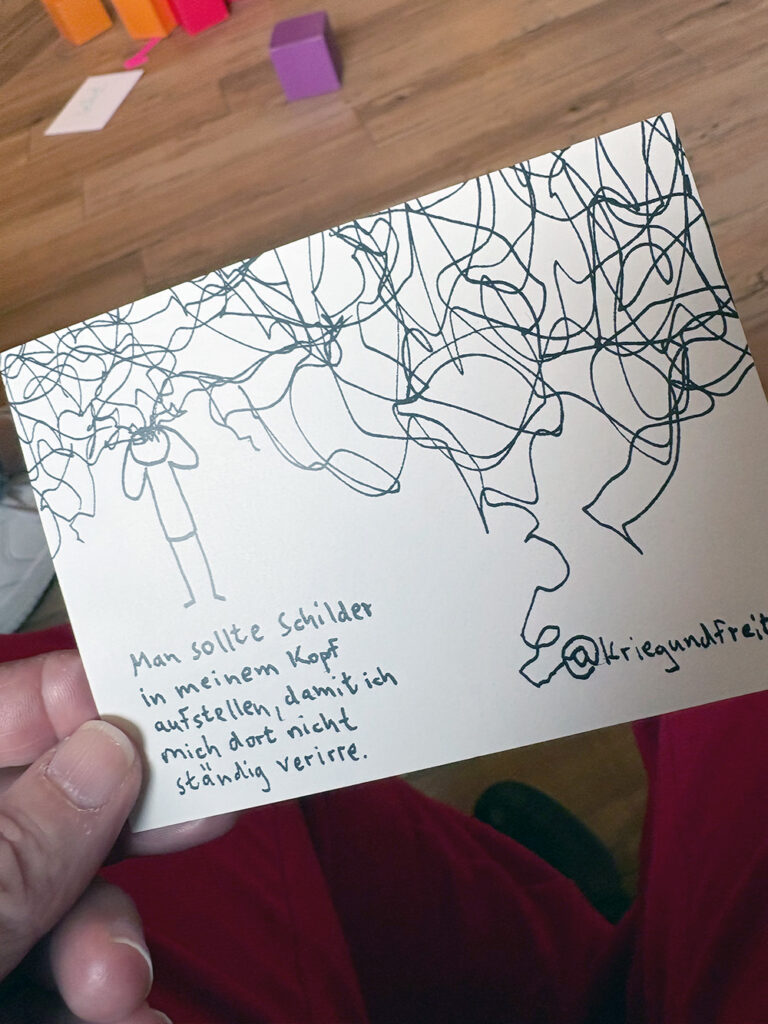 Man sollte Schilder
in meinem Kopf
aufstellen, damit ich
mich dort nicht
ständig verirre.
@kriegundfreit